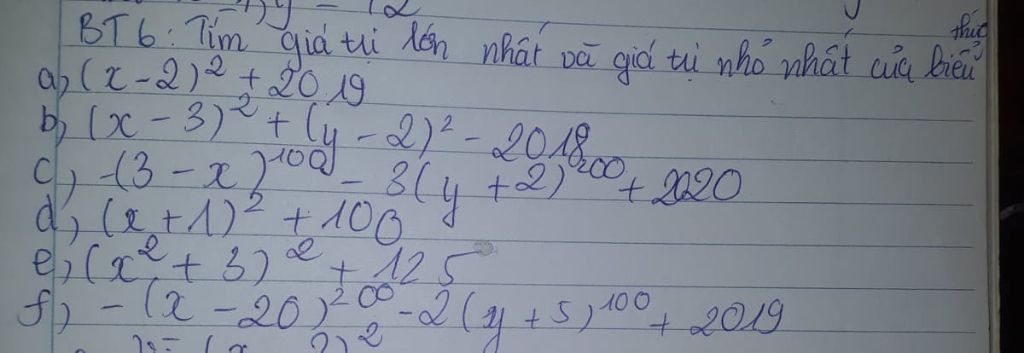 BT6: Tìm giá trị lớn nhất và giá trị nhỏ nhất của biểu thức
a, (x-2)² + 2019
b, (x - 3)² + (y - 2)² - 2018
c, -(3 - x)¹⁰⁰ - 3(y + 2)²⁰⁰ + 2020
d, (x + 1)² + 100
e, (x² + 3)² + 125
f, -(x - 20)²⁰⁰ - 2(y + 5)¹⁰⁰ + 2019